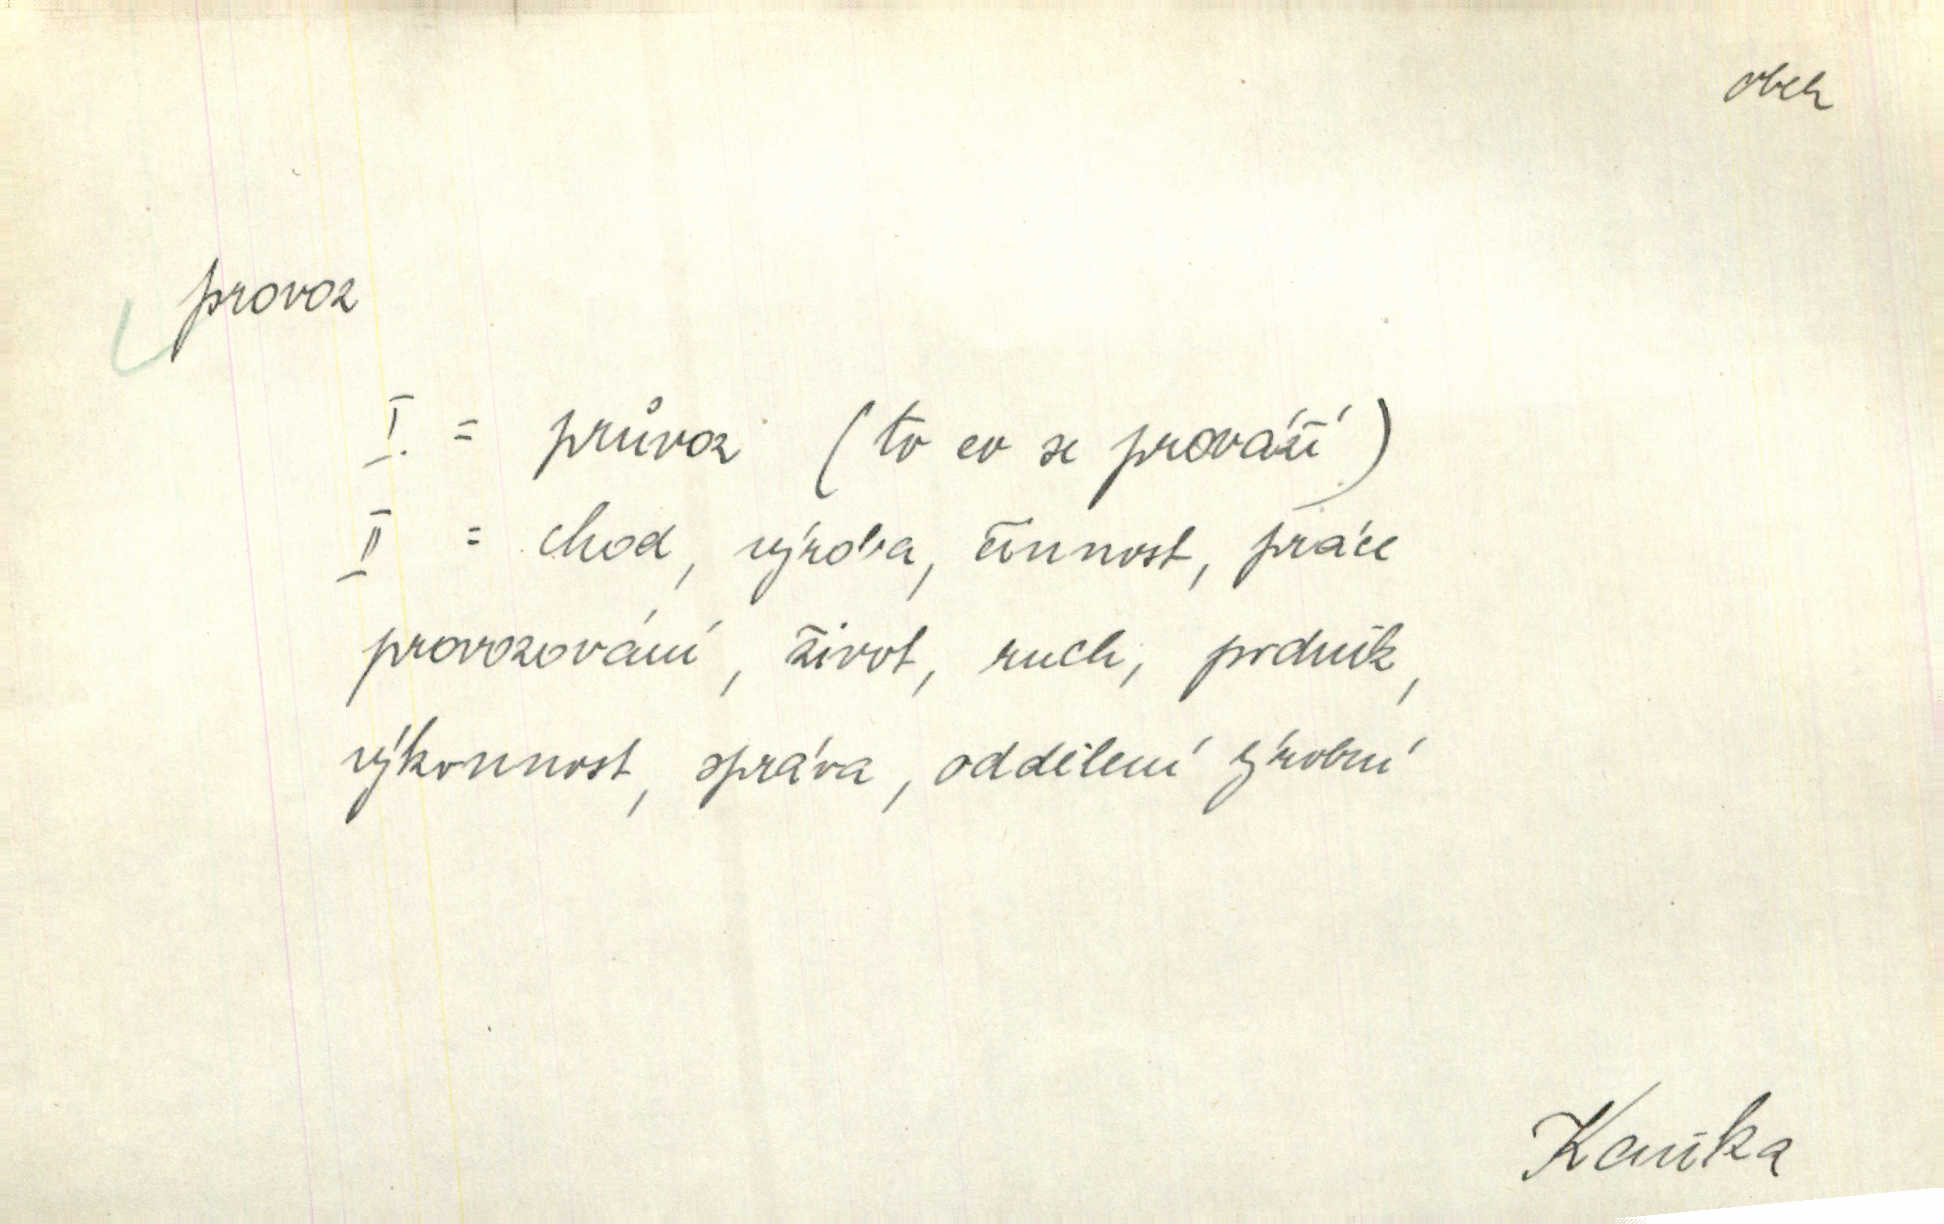 obch
provoz
I. = průvoz (to co se prováží)
II = chod, výroba, činnost, práce
provozování, život, ruch, podnik,
výkonnost, správa, oddělení výrobní
Kaňka